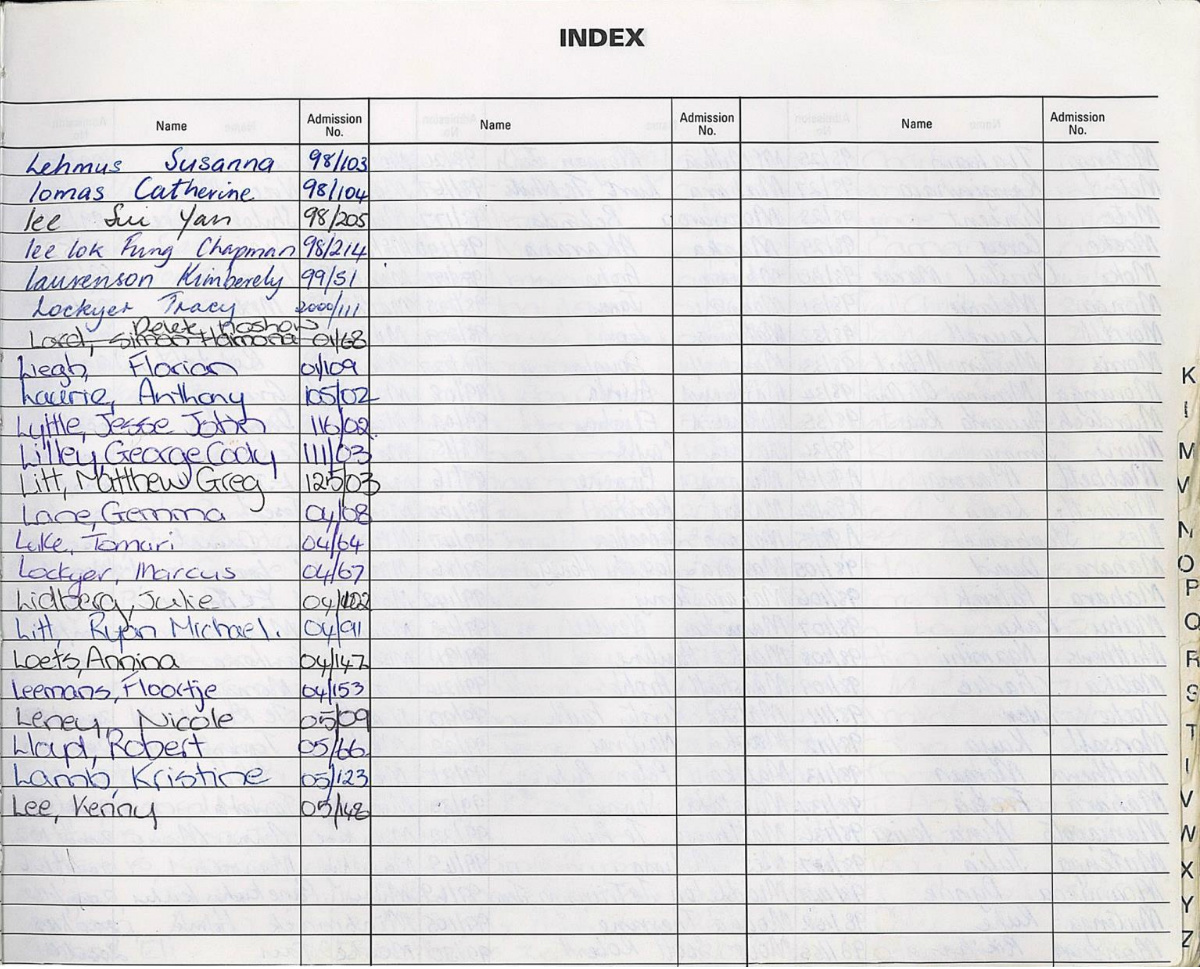 INDEX
Name Admission No. Name Admission No. Name Admission No.
Lehmus Susanna 98/103
Lomas Catherine 98/104
Lee Sui Yan 98/205
Lee Lok Fung Chapman 98/214
Laurenson Kimberely 99/51
Lockyer Tracy 2000/111
Derek
Lord, Simon 01/68
Liegh, Florian 01/109
Laurie, Anthony 105/02
Lyttle, Jesse John 116/02
Lilley, George Cody 111/03
Litt, Matthew Greg 125/03
Lane, Gemma 04/08
Luke, Tomari 04/64
Lockyer, Marcus 04/67
Lidberg, Julie
Litt, Ryan Michael. 04/91
Loets, Annina 04/147
Leemans, Floortje 04/153
Leney, Nicole 05/09
Lloyd, Robert 05/66
Lamb, Kristine 05/123
Lee, Kenny 05/148
K
L
M
N
O
P
Q
R
S
T
V
W
X
Y
Z